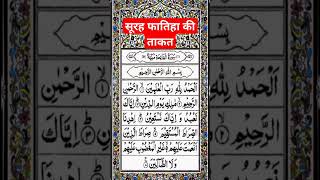 सूरह फातिहा की
ताकत
بِسْمِ اللهِ الرَّحْمٰنِ الرَّحِيْمِ
اَلْحَمْدُ لِلّٰهِ رَبِّ الْعٰلَمِيْنَ ۙ الرَّحْمٰنِ
الرَّحِيْمِ ۙ مٰلِكِ يَوْمِ الدِّيْنِ ؕ اِيَّاكَ
نَعْبُدُ وَ اِيَّاكَ نَسْتَعِيْنُ ؕ اِهْدِنَا
الصِّرَاطَ الْمُسْتَقِيْمَ ۙ صِرَاطَ الَّذِيْنَ
اَنْعَمْتَ عَلَيْهِمْ ۙ غَيْرِ الْمَغْضُوْبِ عَلَيْهِمْ
وَلَا الضَّآلِّيْنَ